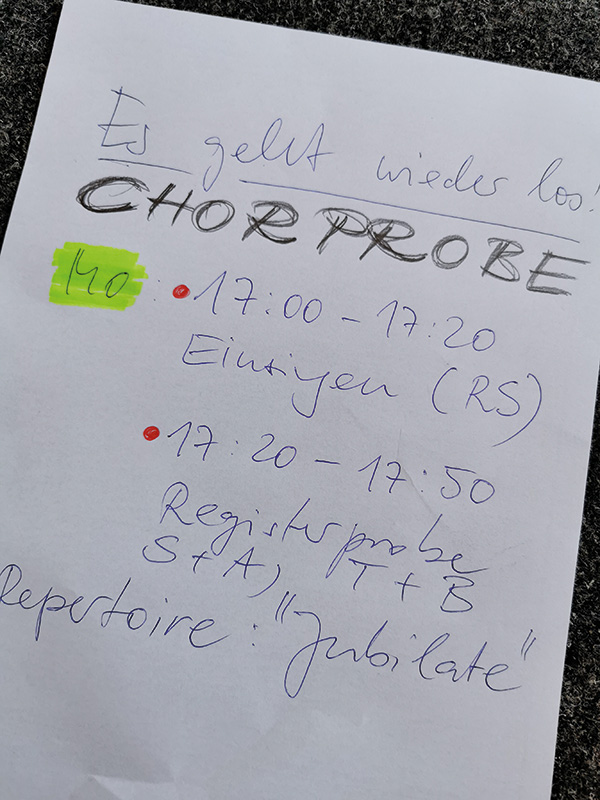 Es geht wieder los!
CHORPROBE
Mo: 17:00 - 17:20
Einsingen (RS)
17:20 - 17:50
Registerprobe
S + A, T + B
Repertoire: "Jubilate"